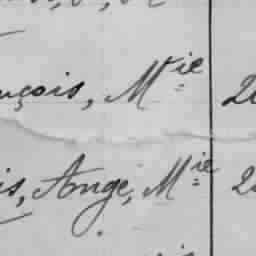 nçois, Mie 2
is, Ange, Mie 2